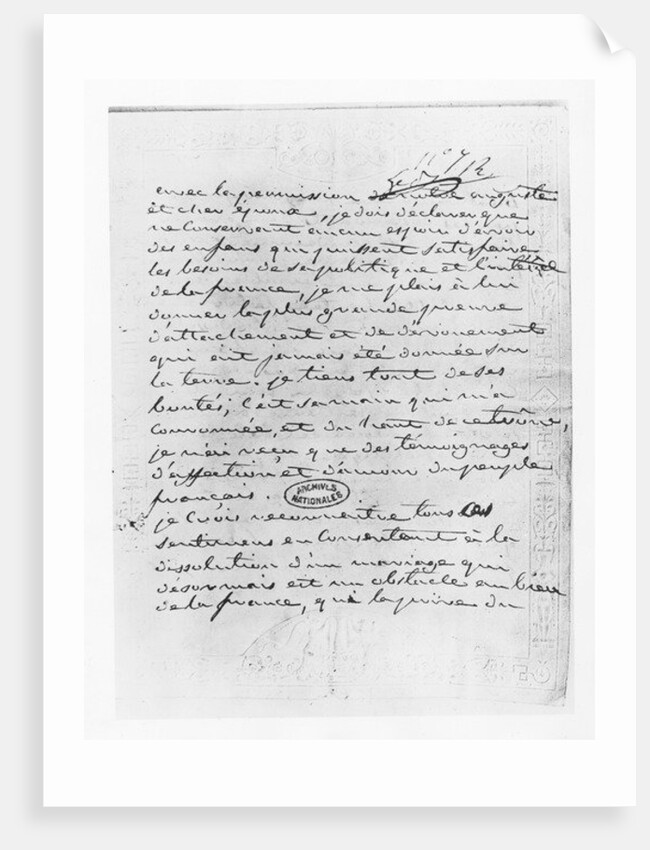 N° 7 12
avec la permission de notre auguste
et cher époux, je dois déclarer que
ne conservant aucun espoir d'avoir
des enfans qui puissent satisfaire
les besoins de sa politique et l'intérêt
de la france, je me plais à lui
donner la plus grande preuve
d'attachement et de dévouement
qui ait jamais été donnée sur
la terre. je tiens tout de ses
bontés; c'est sa main qui m'a
couronnée, et du haut de ce trône,
je n'ai reçu que des témoignages
d'affection et d'amour du peuple
français.
ARCHIVES
NATIONALES
je crois reconnaitre tous ces
sentimens en consentant à la
dissolution d'un mariage qui
désormais est un obstacle au bien
de la france, qui la prive du